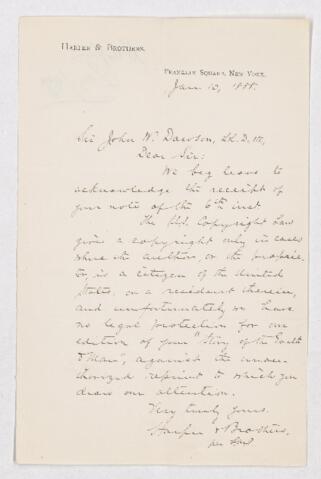 HARPER & BROTHERS.
FRANKLIN SQUARE, NEW YORK.
Jan 10, 1888.
Sir John W. Dawson, LL.D. etc,
Dear Sir:
We beg leave to
acknowledge the receipt of
your note of the 6th inst
The U.S. Copyright Law
gives a copyright only in cases
where the author, or the proprie-
tor, is a citizen of the United
States, or a resident therein,
and unfortunately we have
no legal protection for our
edition of your "Story of the Earth
& Man", against the unau-
thorized reprint to which you
draw our attention.
Very truly yours.
Harper & Brothers.
per